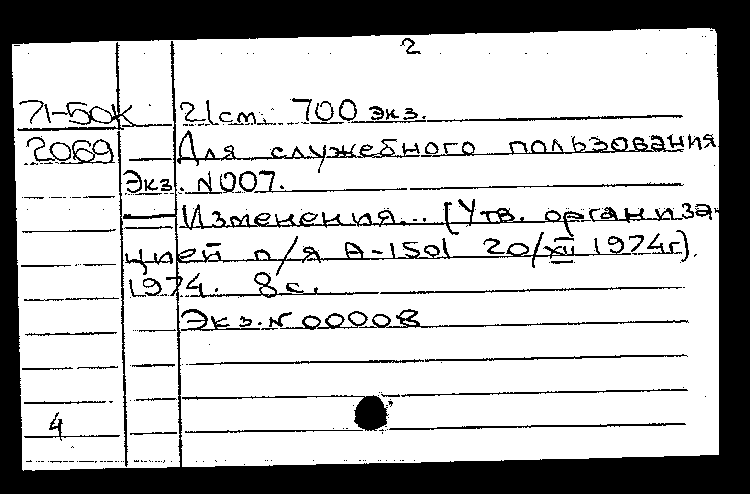 2
71-50К 21см. 700 экз.
2069 Для служебного пользования
Экз. N007.
— Изменения... (Утв. организа-
цией п/я А-1501 20/XII 1974г).
1974. 8с.
Экз. N 00008
4